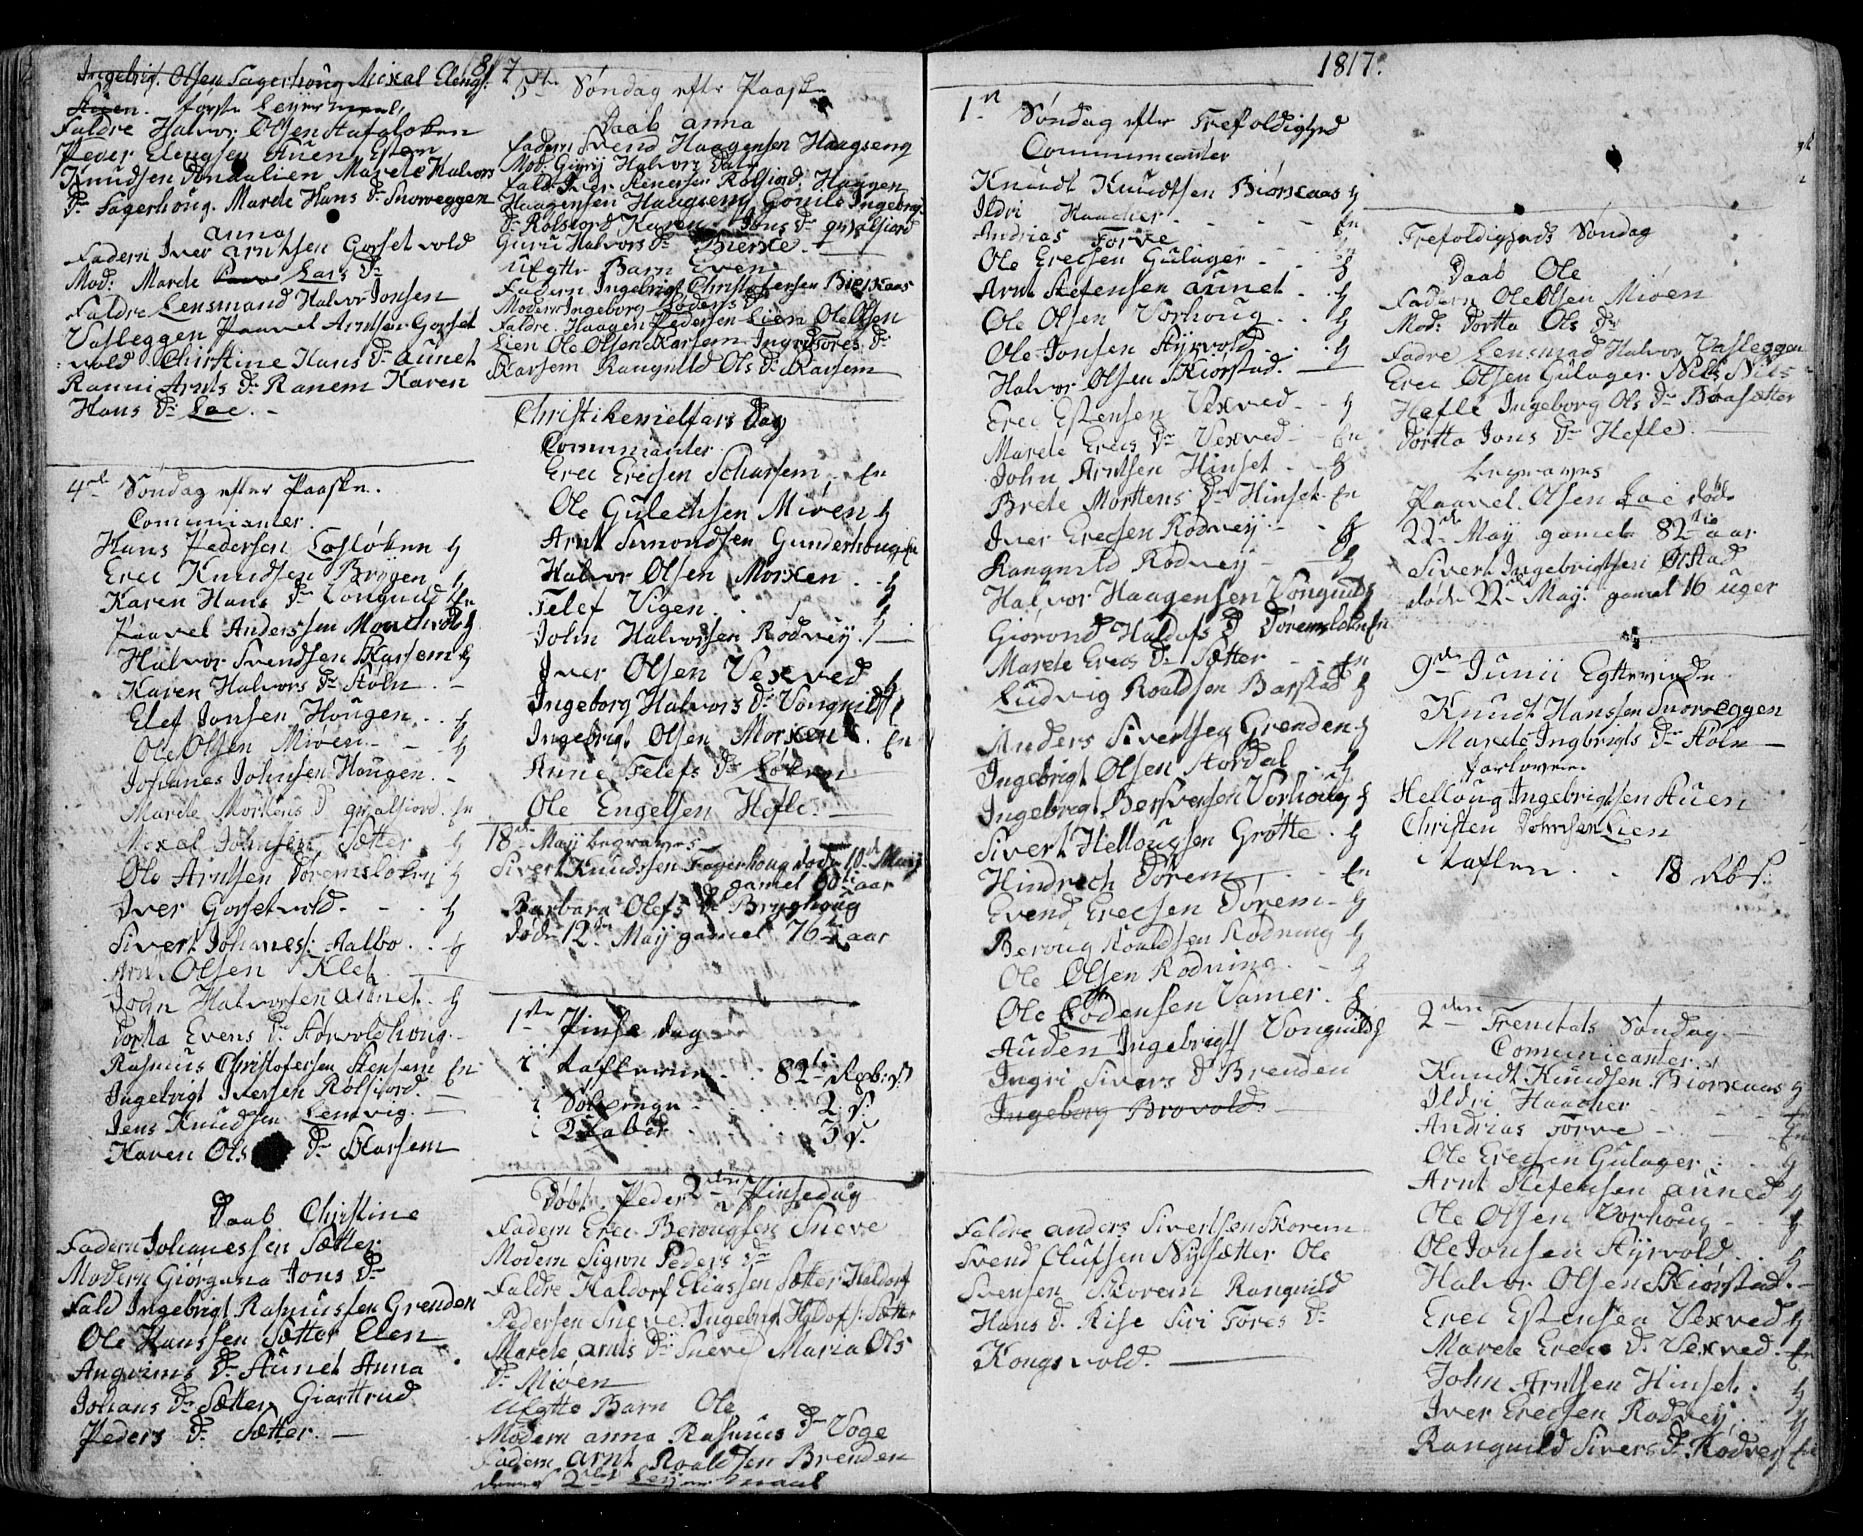 1817
Ingebrigt Olsen Fagerhoug Mixal Elengs:
Auen. første Leyermaal
Faldre Halvor Olsen Stafaløken
Peder Elengsen Auen Esten
Knudsen Marete Halvors
Dr Fagerhoug. Marete Hans Dr Snoweggen
anna
Fadern Iver Arntsen Gorset vold
Mod: Marete Lars Dr
Faldre Lensmand Halvor Jonsen
Vasleggen Paavel Arntsen Gorset
vold Christine Hans Dr Aunet
Ranni Arnts Dr Ranem Karen
Hans Dr Loe. -
4de Søndag efter Paaske.
Communicanter.
Hans Pedersen Losløken ɧ
Erec Knudsen Bryggen ɧ
Karen Hans Dr Vonguild En
Paavel Anderssen ɧ
Halvor Svendsen Skarsem ɧ
Karen Halvors Dr Støln. -
Elef Jonsen Hougen. . ɧ
Ole Olsen Mioen - - ɧ
Johanes Johnsen Hougen. -
Marete Mortens D qvalsiord. En
Mixal Johnsen Sætter. ɧ
Ole Arntsen Doremsloken ɧ
Iver Gorsetvold. - - ɧ
Sivert Johanes: Aalbo. . ɧ
Arnt Olsen Klet. -
John Halvorsen aunet. ɧ
Dortta Evens Dr Storvoldhoug.
Rasmus Christofersen Stensem En
Ingebrigt Iversen Rolfsiord. -
Jens Knudsen Lenvig. -
Karen Ols Dr Skarsem
Daab Christine
Fadern Johanessen Sætter
Modern Giorgana Jons Dr
Fald Ingebrigt Rasmussen Grenden
Ole Hanssen Sætter Elen
Angrims Dr Aunet Anna
Johans Dr Sætter Giarttrud
Peders Dr Sætter. -
5te Søndag efter Paaske
Daab anna
Fadern Svend Haagensen Haagseng
Mod: Gury Halvors Datr
Fald: Iver Stenersen Rolsiord: Haagen
Haagensen Haagseng Gonild Ingebrigt
Dr Rolsiord Karen Jons Dr qvalsiord
Guru Halvors Dr Bierke.
Uægtte Barn Even
Fadern Ingebrigt Christofersen Bierkaas
Modern Ingeborg Lodens Dr
Faldre. Haagen Pedersen Lien Ole Olsen
Lien Ole Olsen Skarsem Ingri Tores Dr
Skarsem Rangnild Ols Dr Skarsem
Christi Hemelfars Dag
Communicanter
Erec Erecsen Scharsem. . En
Ole Gulechsen Mioen ɧ
Arnt Simondsen Gunderhoug En
Halvor Olsen Morken. . ɧ
Telef Vigen. . ɧ
John Halvorsen Rødvey. ɧ
Iver Olsen Vexved ɧ
Ingeborg Halvors Dr Vonguild
Ingebrigt Olsen Morken. En
Anne Telefs Dr Løken
Ole Engelsen Hefle.
18de Maij begraves
Sivert Knudssen Fagerhoug død 10de Maij
gamel 60ti aar
Barbara Olefs Dr Bryghoug
døde 12te Maij gamel 76ti aar
1ste Pinse dag
i taflerne - . . 82ti Rb: S:
i . . . 2 S.
i . . . 3 S.
2den Pinsedag
Døbt Peder
Fadern Erec Berougsen Sneve
Modern Sigrov Peders Dr
Faldre Haldorf Eliassen Sætter Haldorf
Pedersen Sneve Ingebrigt Haldofs: Sætter
Marete Arnts Dr Sneve Maria Ols
Dr Mioen
Uægtte Barn Ole
Modern anna Rasmus Dr Voge
Fadern arnt Roaldsen Brenden
deres 2det Leyermaal
1817.
1te Søndag efter Trefoldighed
Communicanter
Knudt Knudtsen Biørkaas ɧ
Ildri Haacher - - - En
Andrias Torve - - ɧ
Ole Erecsen Gulager. - . ɧ
Arnt Stefensen aunet. . ɧ
Ole Olsen Vorhoug. . . ɧ
Ole Jonsen Styrvold. . . ɧ
Halvor Olsen Skiorstad.
Erec Estensen Vexved. - ɧ
Marete Erecs Dr Vexved - En
John Arntsen Hinset. - ɧ
Brete Mortens Dr Hinset. En
Iver Erecsen Rodvey. - ɧ
Rangnild Rodvey - - ɧ
Halvor Haagensen Vonguild ɧ
Giorond Haldofs D Doremsloken En
Marete Erecs Dr Sætter - En
Ludvig Roaldsen Barstad ɧ
Anders Sivertsen Grenden ɧ
Ingebrigt Olsen Stordal. ɧ
Ingebrigt Bersvensen Vorhoug ɧ
Sivert Hellougsen Grøtte. ɧ
Hindrech Dorem . . En
Evend Erecsen Dorem - ɧ
Beroug Roaldsen Rodning ɧ
Ole Olsen Rodning. - ɧ
Ole Lodensen Vamer. ɧ
Auden Ingebrigts Vonguild ɧ
Ingri Sivers D Brenden
Ingeborg Brovold. -
Faldre anders Sivertsen Skorem
Svend Olufsen Nylsætter Ole
Svensen Skorem Ranguild
Hans D. Rise Siri Tores Dr
Kongsvold. -
Trefoldigheds Søndag
Daab Ole
Fadern Ole Olsen Mioen
Mod: Dortta Ols Dr
Fadre Lensmad Halvor Vasleggen
Erec Olsen Gulager. Nils Nils
Hefle Ingeborg Ols Dr Baasætter
Dortta Jons Dr Hefle.
begraves
Paavel Olsen Loe død
22de May gamel 82tio aar
Sivert Ingebrigtsen Ørstad
døde 22de May. gamel 16 uger
9de Junii Egteviede
Knudt Hanssen Snoweggen
Marete Ingbrigts Dr Støln
farlovere
Helloug Ingebrigtsen Auen
Christen Johnsen Lien
i taflen. . . 18 Rb S:
2den Trenetats Søndag.
Comunicanter
Knudt Knudsen. Biorkaas ɧ
Ildri Haacher
Andrias Torve - . En
Ole Erecsen Gulager. . ɧ
Arnt Stefensen auned ɧ
Ole Olsen Vorhoug - . ɧ
Ole Jonsen Styrvold. . ɧ
Halvor Olsen Skiorstad. -
Erec Estensen Vexved ɧ
Marete Erecs D. Vexved. En
John Arntsen Hinset. ɧ
Iver Erecsen Rodvey. . ɧ
Ranguild Sivers Dr Rodvey En